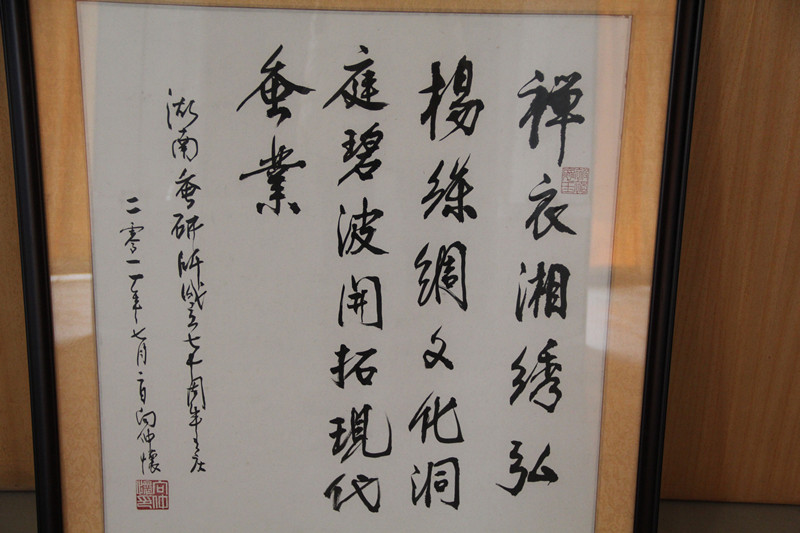 禅衣湘绣弘
楊絲綢文化洞
庭碧波開拓現代
蚕業
湖南蚕研所成立七十周年之庆
二零一一年七月一日向仲懷